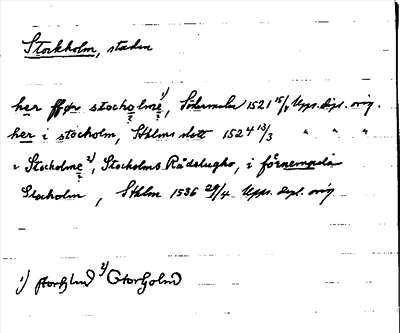 Stockholm, staden
her ffør stocholme¹⁾, Södermalm 1521 15/4 Upps. dipl. orig.
her i stocholm, Sthlms slott 1524 13/3 " " "
i Stocholme²⁾, Stocholms Rådstugho, i förnempda
Stocholm, Sthlm 1536 29/4 Upps. dipl. orig
1) stocholm 2) Stocholm